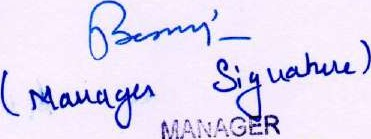 (Manager Signature)
MANAGER